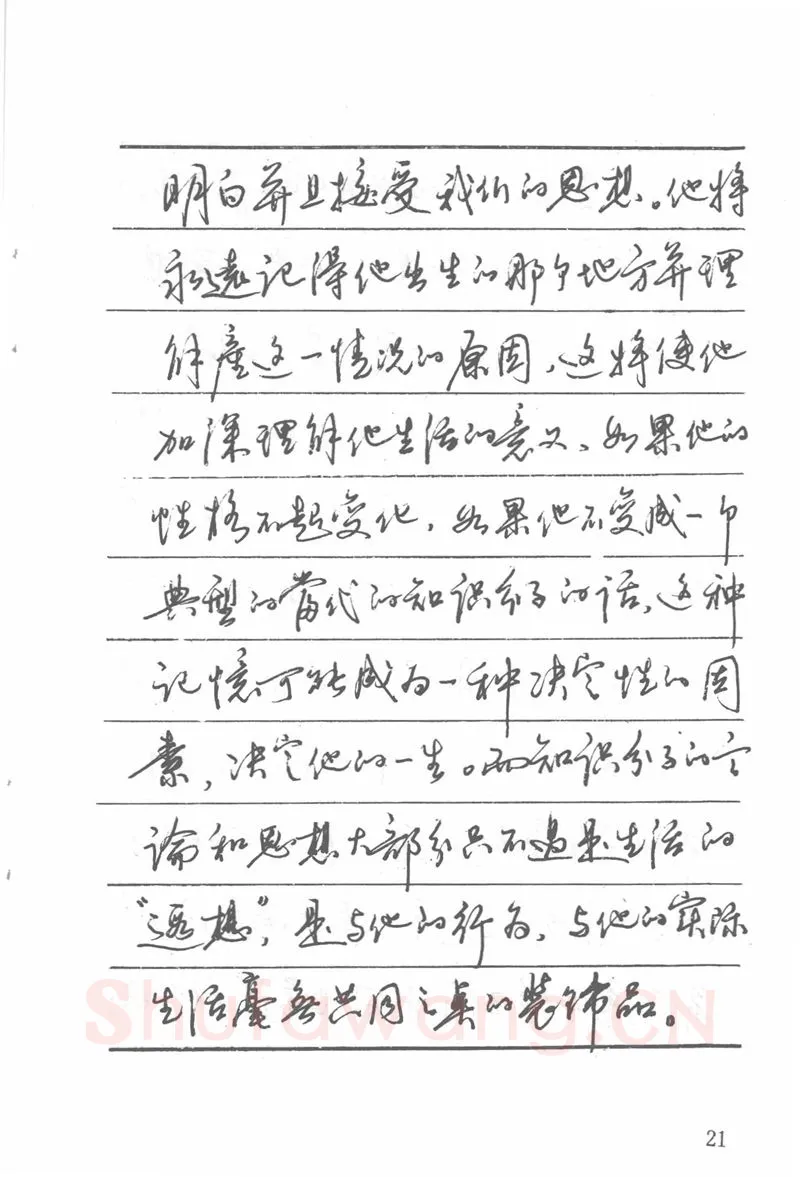 明白并且接受我们的思想。他将
永远记得他出生的那个地方并理
解産这一情况的原因、这将使他
加深理解他生活的意义、如果他的
性格不起变化，如果他不变成一个
典型的當代的知识分子的话、这种
记憶可能成为一种决定性的因
素，决定他的一生。而知识分子的言
论和思想大部分只不过是生活的
是与他的行为、与他的实际
生活毫无共同之点的装饰品。
Shufawang.CN
21